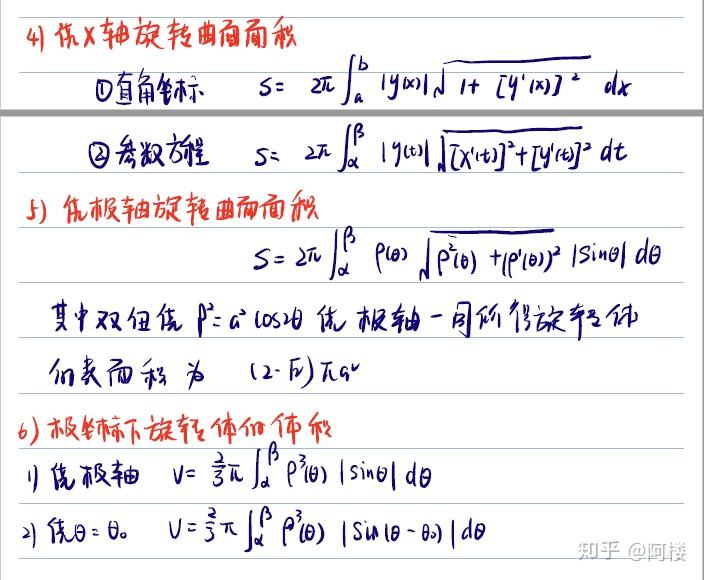 4) 绕X轴旋转曲面面积
①直角坐标 S= 2π∫_a^b |y(x)|√(1+[y'(x)]²) dx
②参数方程 S= 2π∫_α^β |y(t)|√([x'(t)]²+[y'(t)]²) dt
5) 绕极轴旋转曲面面积
S=2π∫_α^β ρ(θ)√(ρ²(θ)+(ρ'(θ))²) |sinθ| dθ
其中双纽线 ρ²=a²cos2θ 绕极轴一周所得旋转体
的表面积为 (2-√2)πa²
6) 极坐标下旋转体的体积
1) 绕极轴 V=2/3π∫_α^β ρ³(θ) |sinθ| dθ
2) 绕θ=θ₀ V=2/3π∫_α^β ρ³(θ) |sin(θ-θ₀)| dθ
知乎 @阿楼